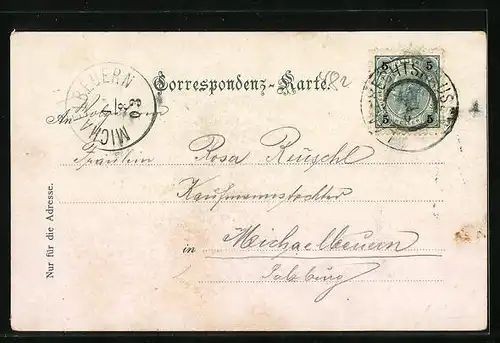 Correspondenz-Karte.
402
5 5
5 5
MICHAELBEUERN
03
An Wohlgeboren
Fräulein Rosa Reuschl
Kaufmannstochter
in Michaelbeuern
Salzburg
Nur für die Adresse.